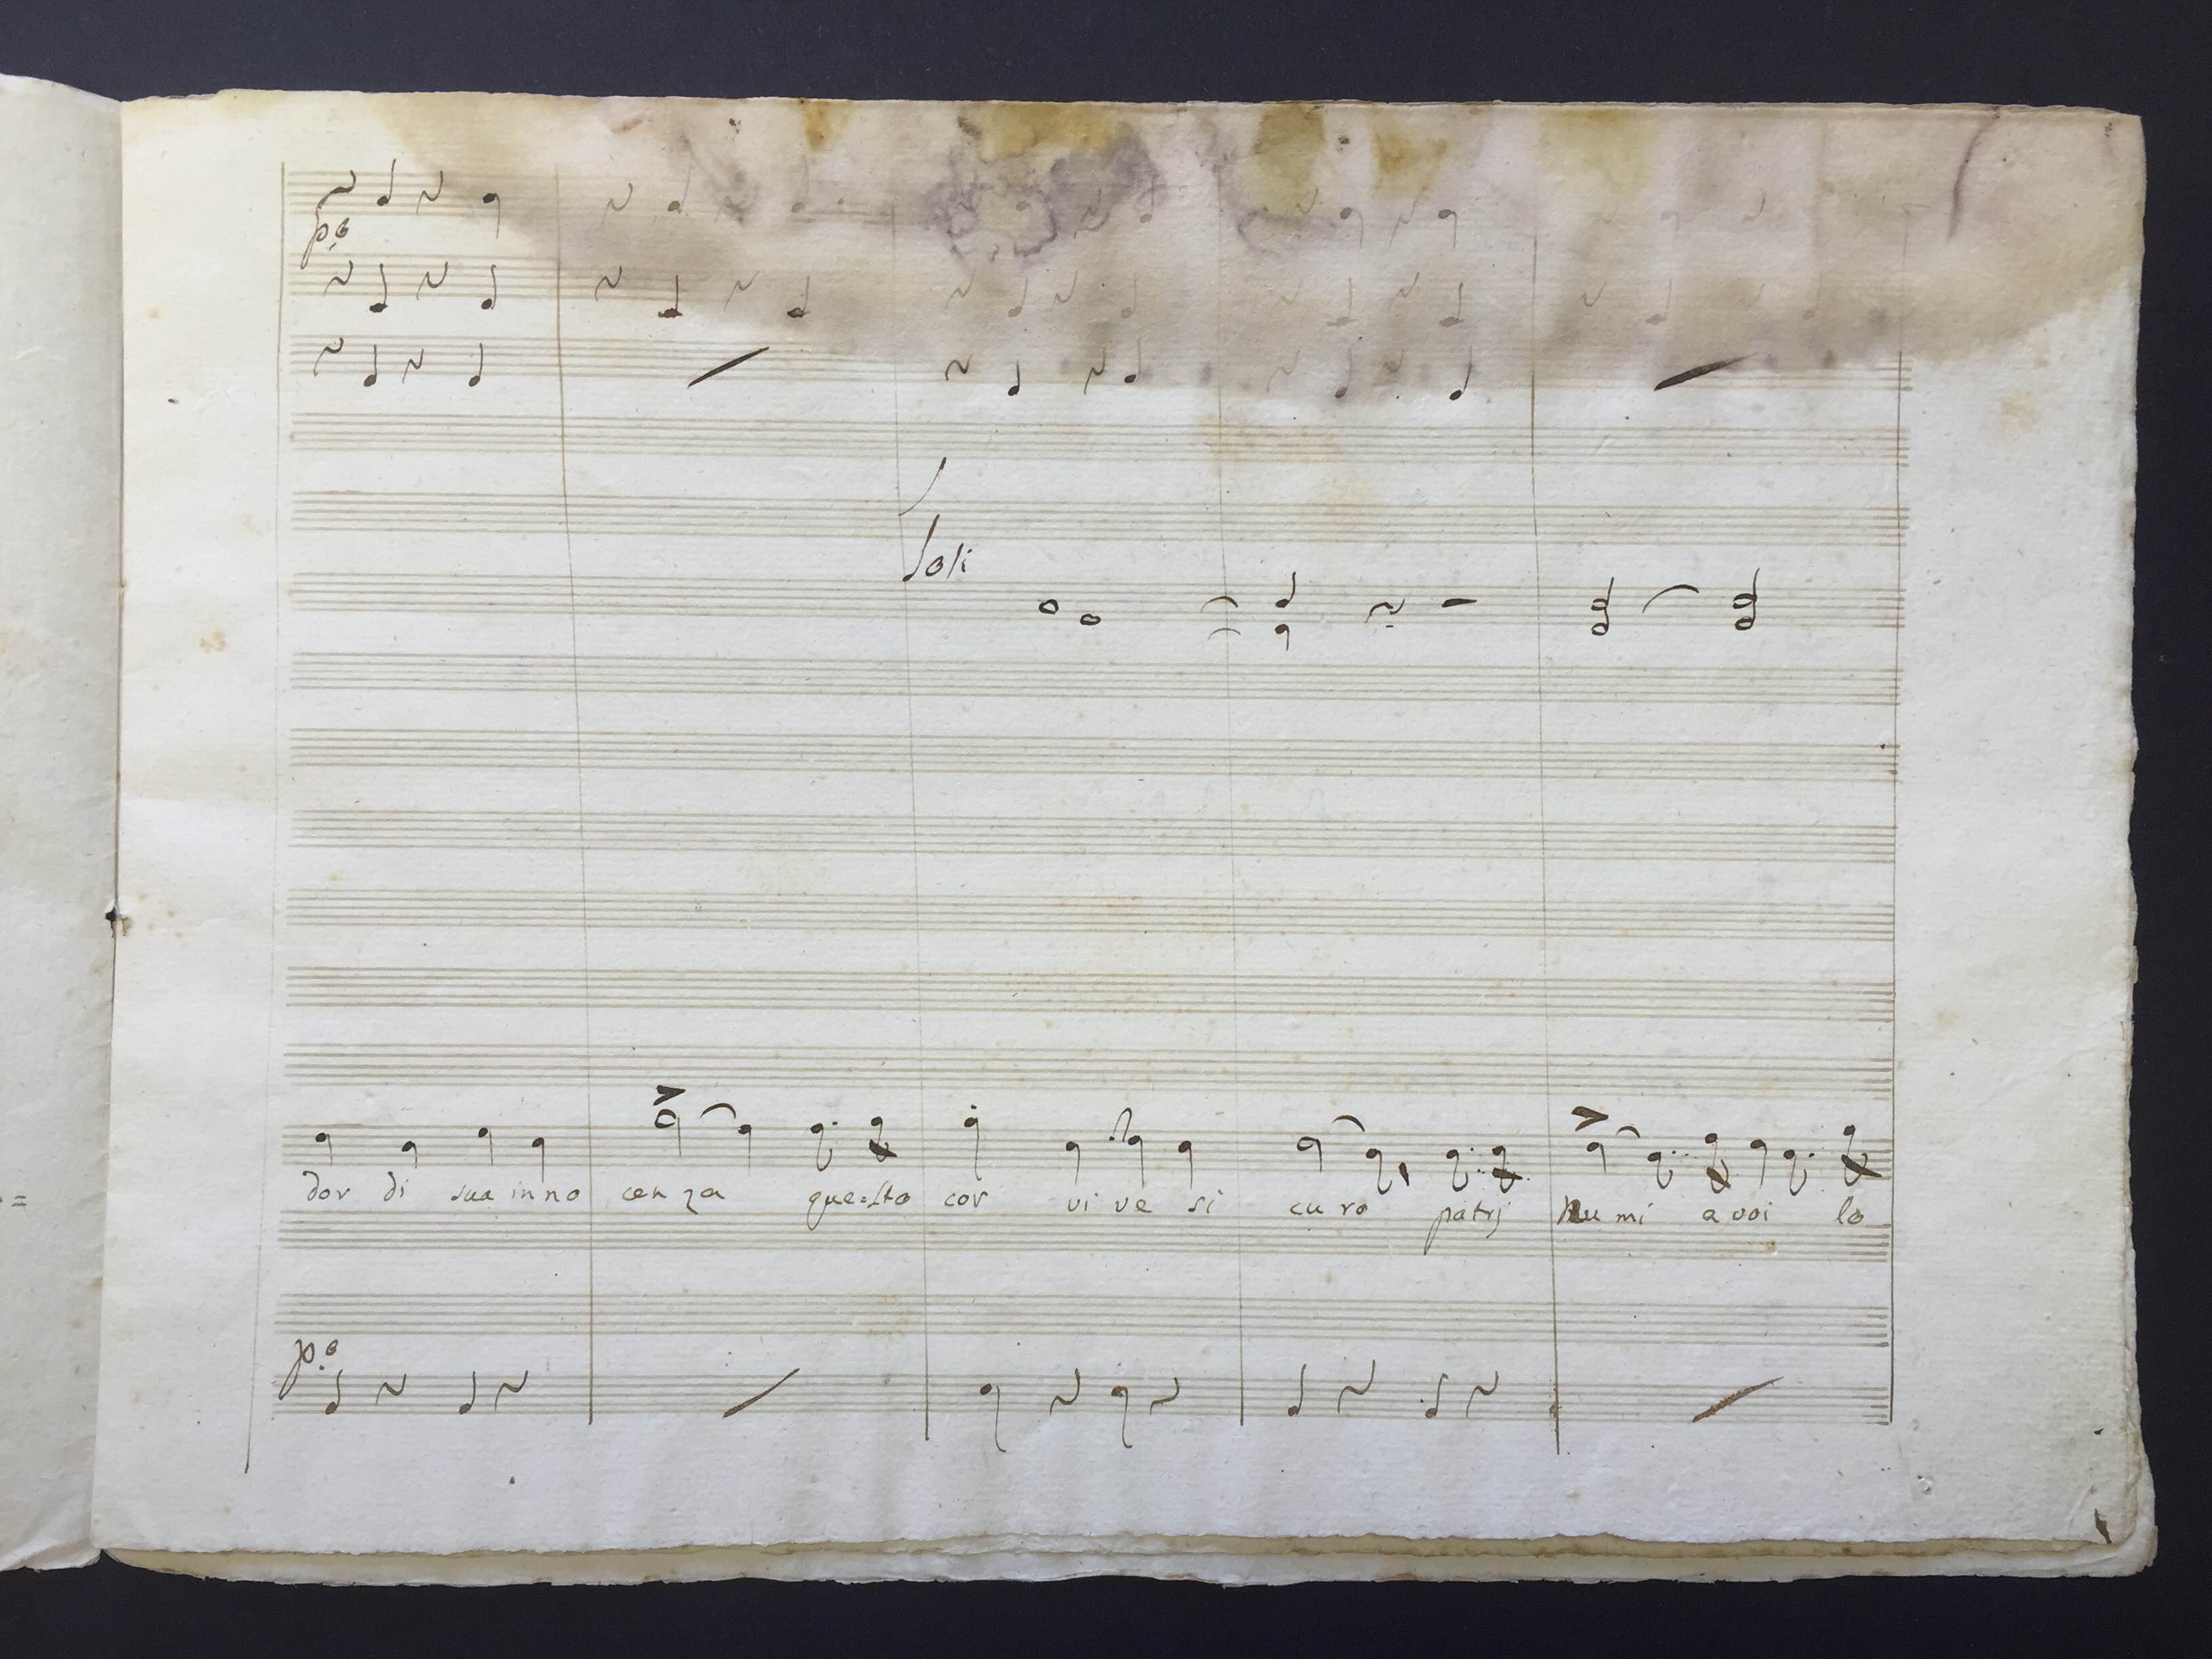 p.o
Soli
dor di sua in no cen za que=sto cor vi ve si cu ro patrj Nu mi a voi lo
p.o